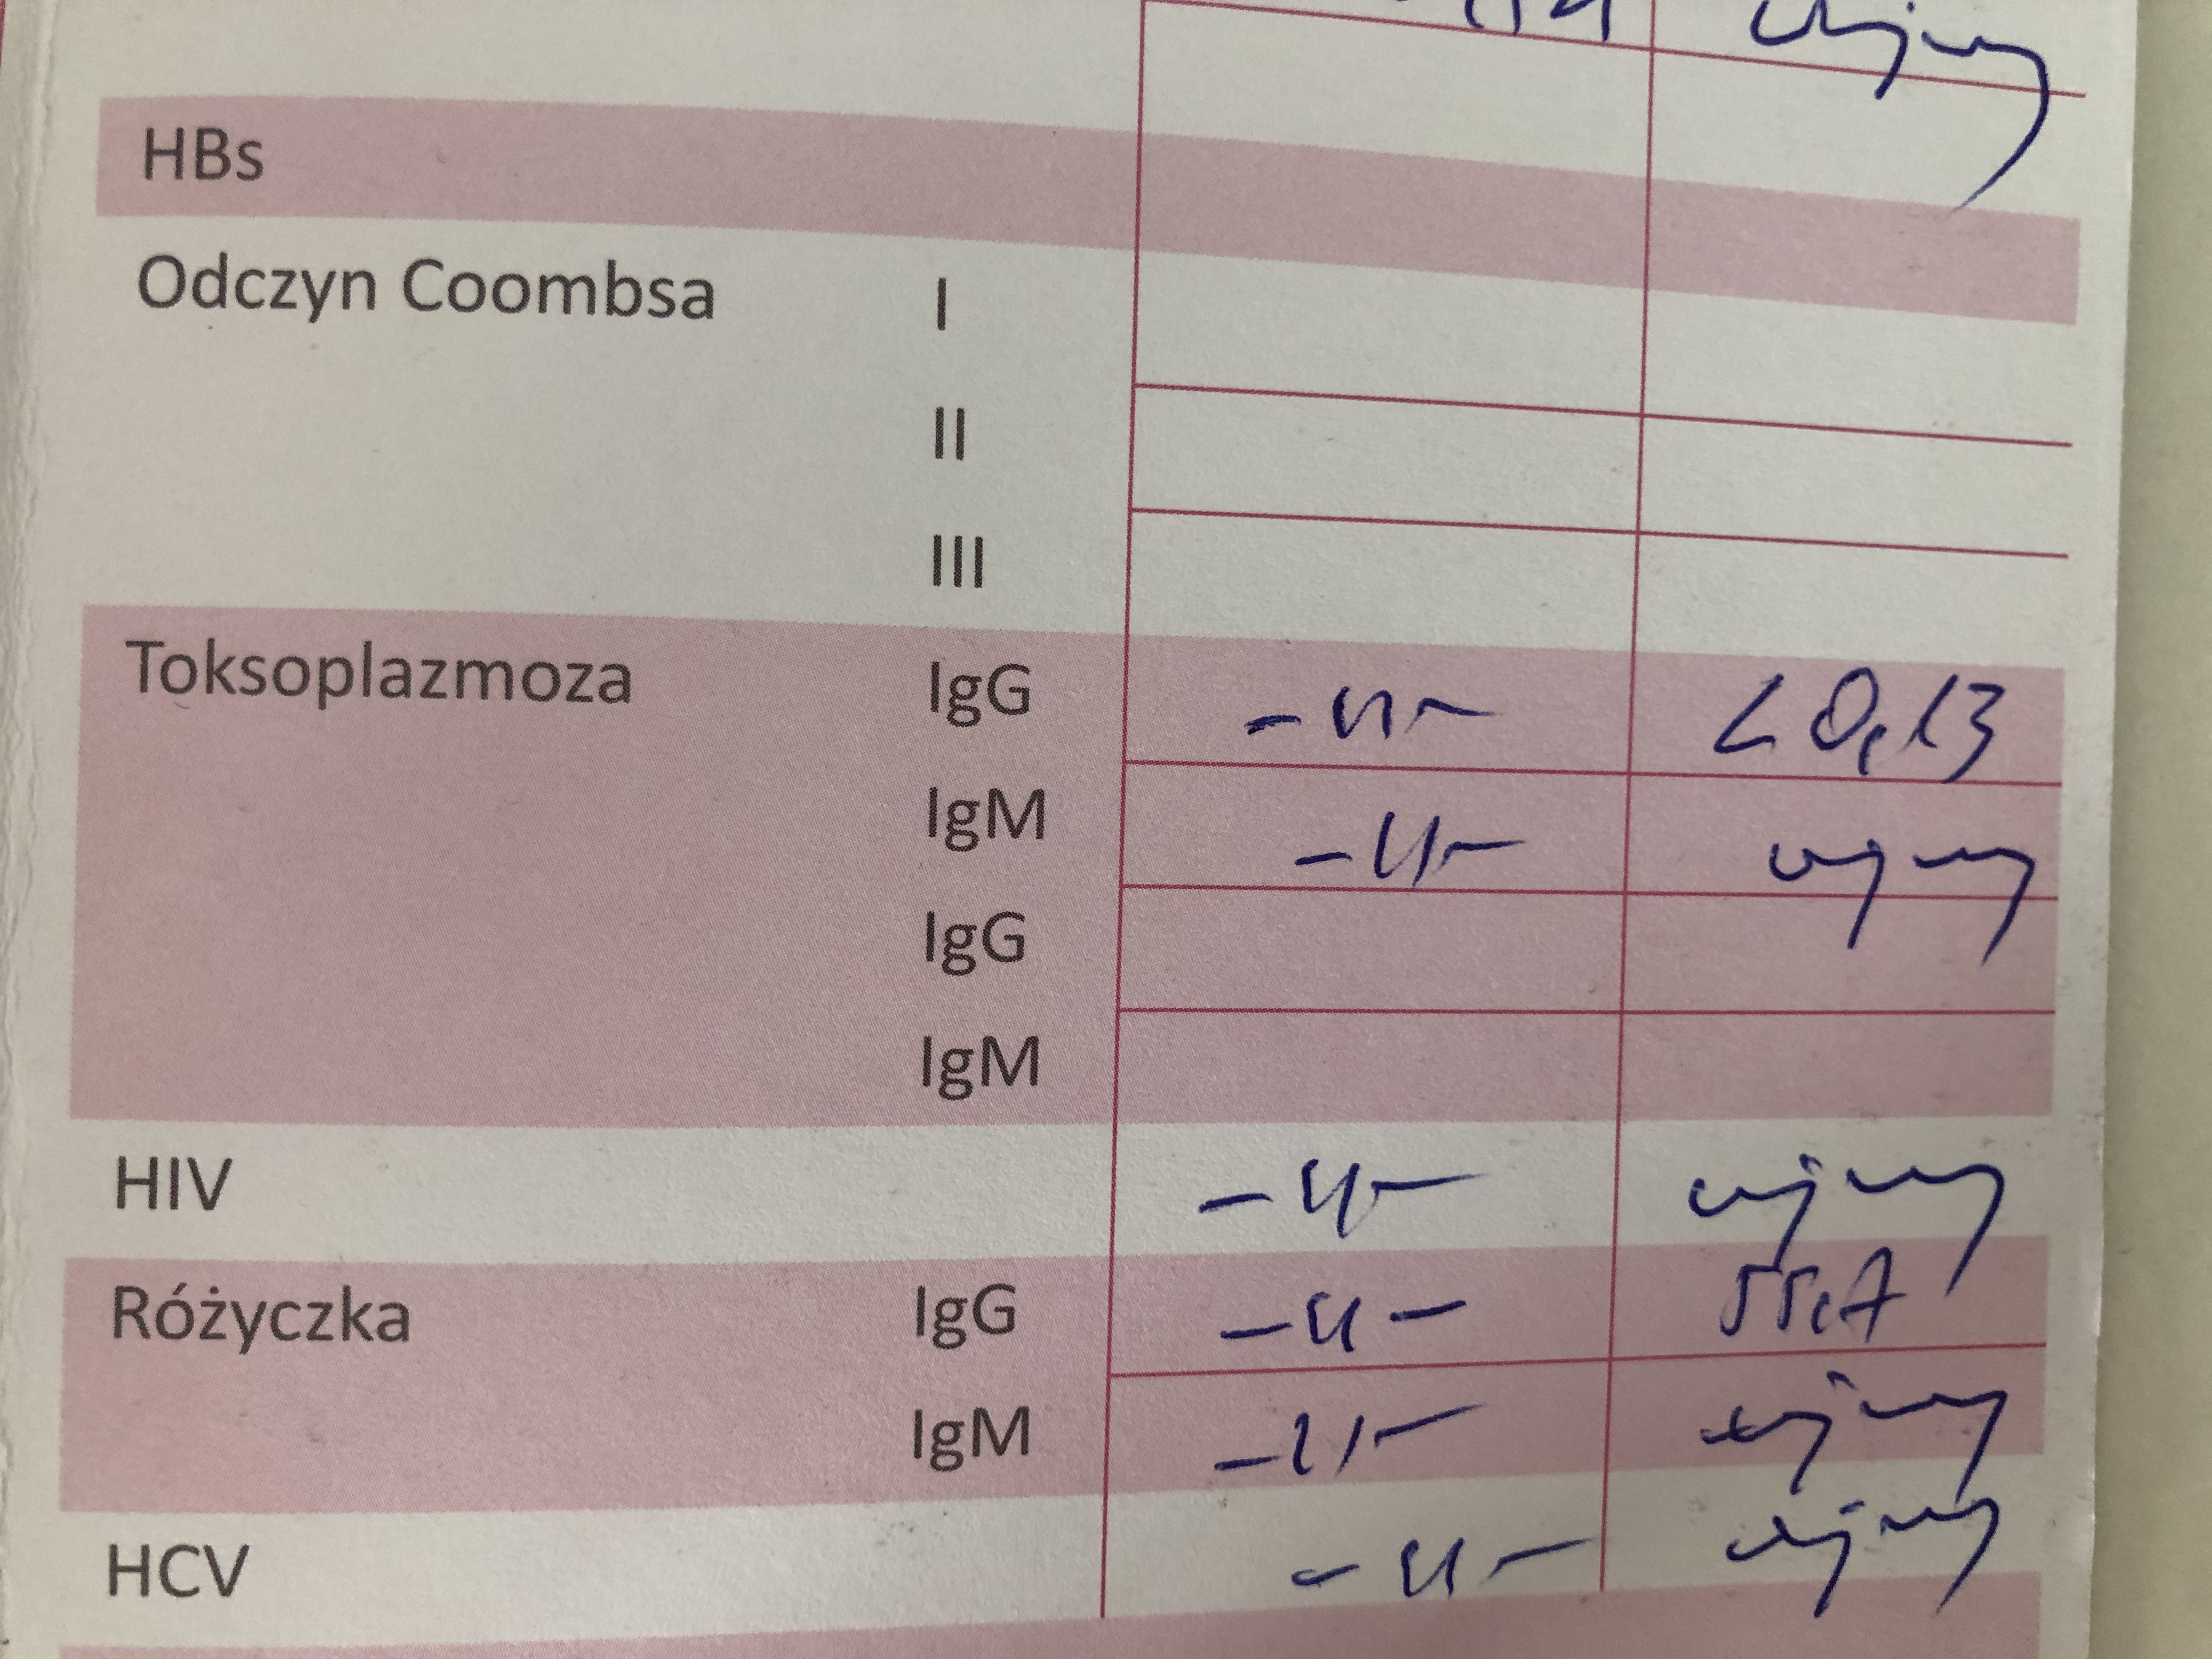 ujemny
HBs
Odczyn Coombsa I
II
III
Toksoplazmoza IgG -"- < 0,13
IgM -"- ujemny
IgG
IgM
HIV -"- ujemny
Różyczka IgG -"- 55,7
IgM -"- ujemny
HCV -"- ujemny